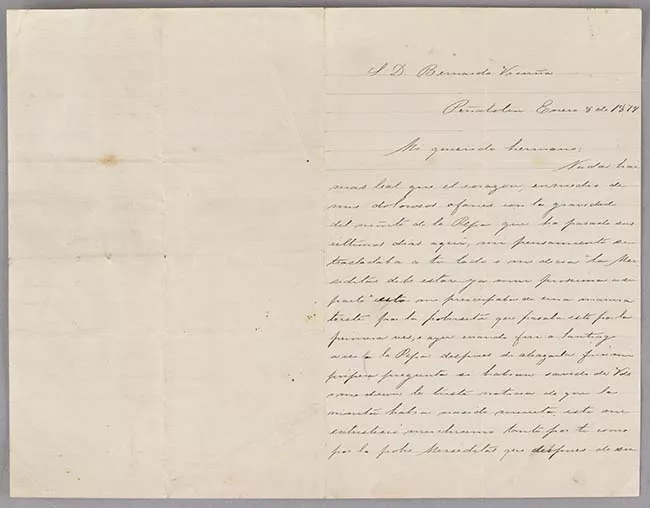 S. D. Bernardo Vicuña
Peñalolen Enero 8 de 1879
Mi querido hermano;
Nada hai
mas leal que el corazon, en medio de
mis dolorosos afanes con la gravedad
del niñito de la Pepa que ha pasado sus
últimos dias aqui, mi pensamiento se
trasladaba a tu lado i me decia la Mer-
seditas debe estar ya mui proxima a su
parto esto me preocupaba de una manera
triste por la pobresita que pasaba esto por la
primera ves, i ayer cuando fui a Santiago
a ver a la Pepa despues de abrazarla fue mi
primera pregunta si habian sabido de Vds
i me dieron la triste noticia de que la
habia nacido muerta, esto me
entristecio muchisimo tanto por ti como
por la pobre Merseditas que despues de su